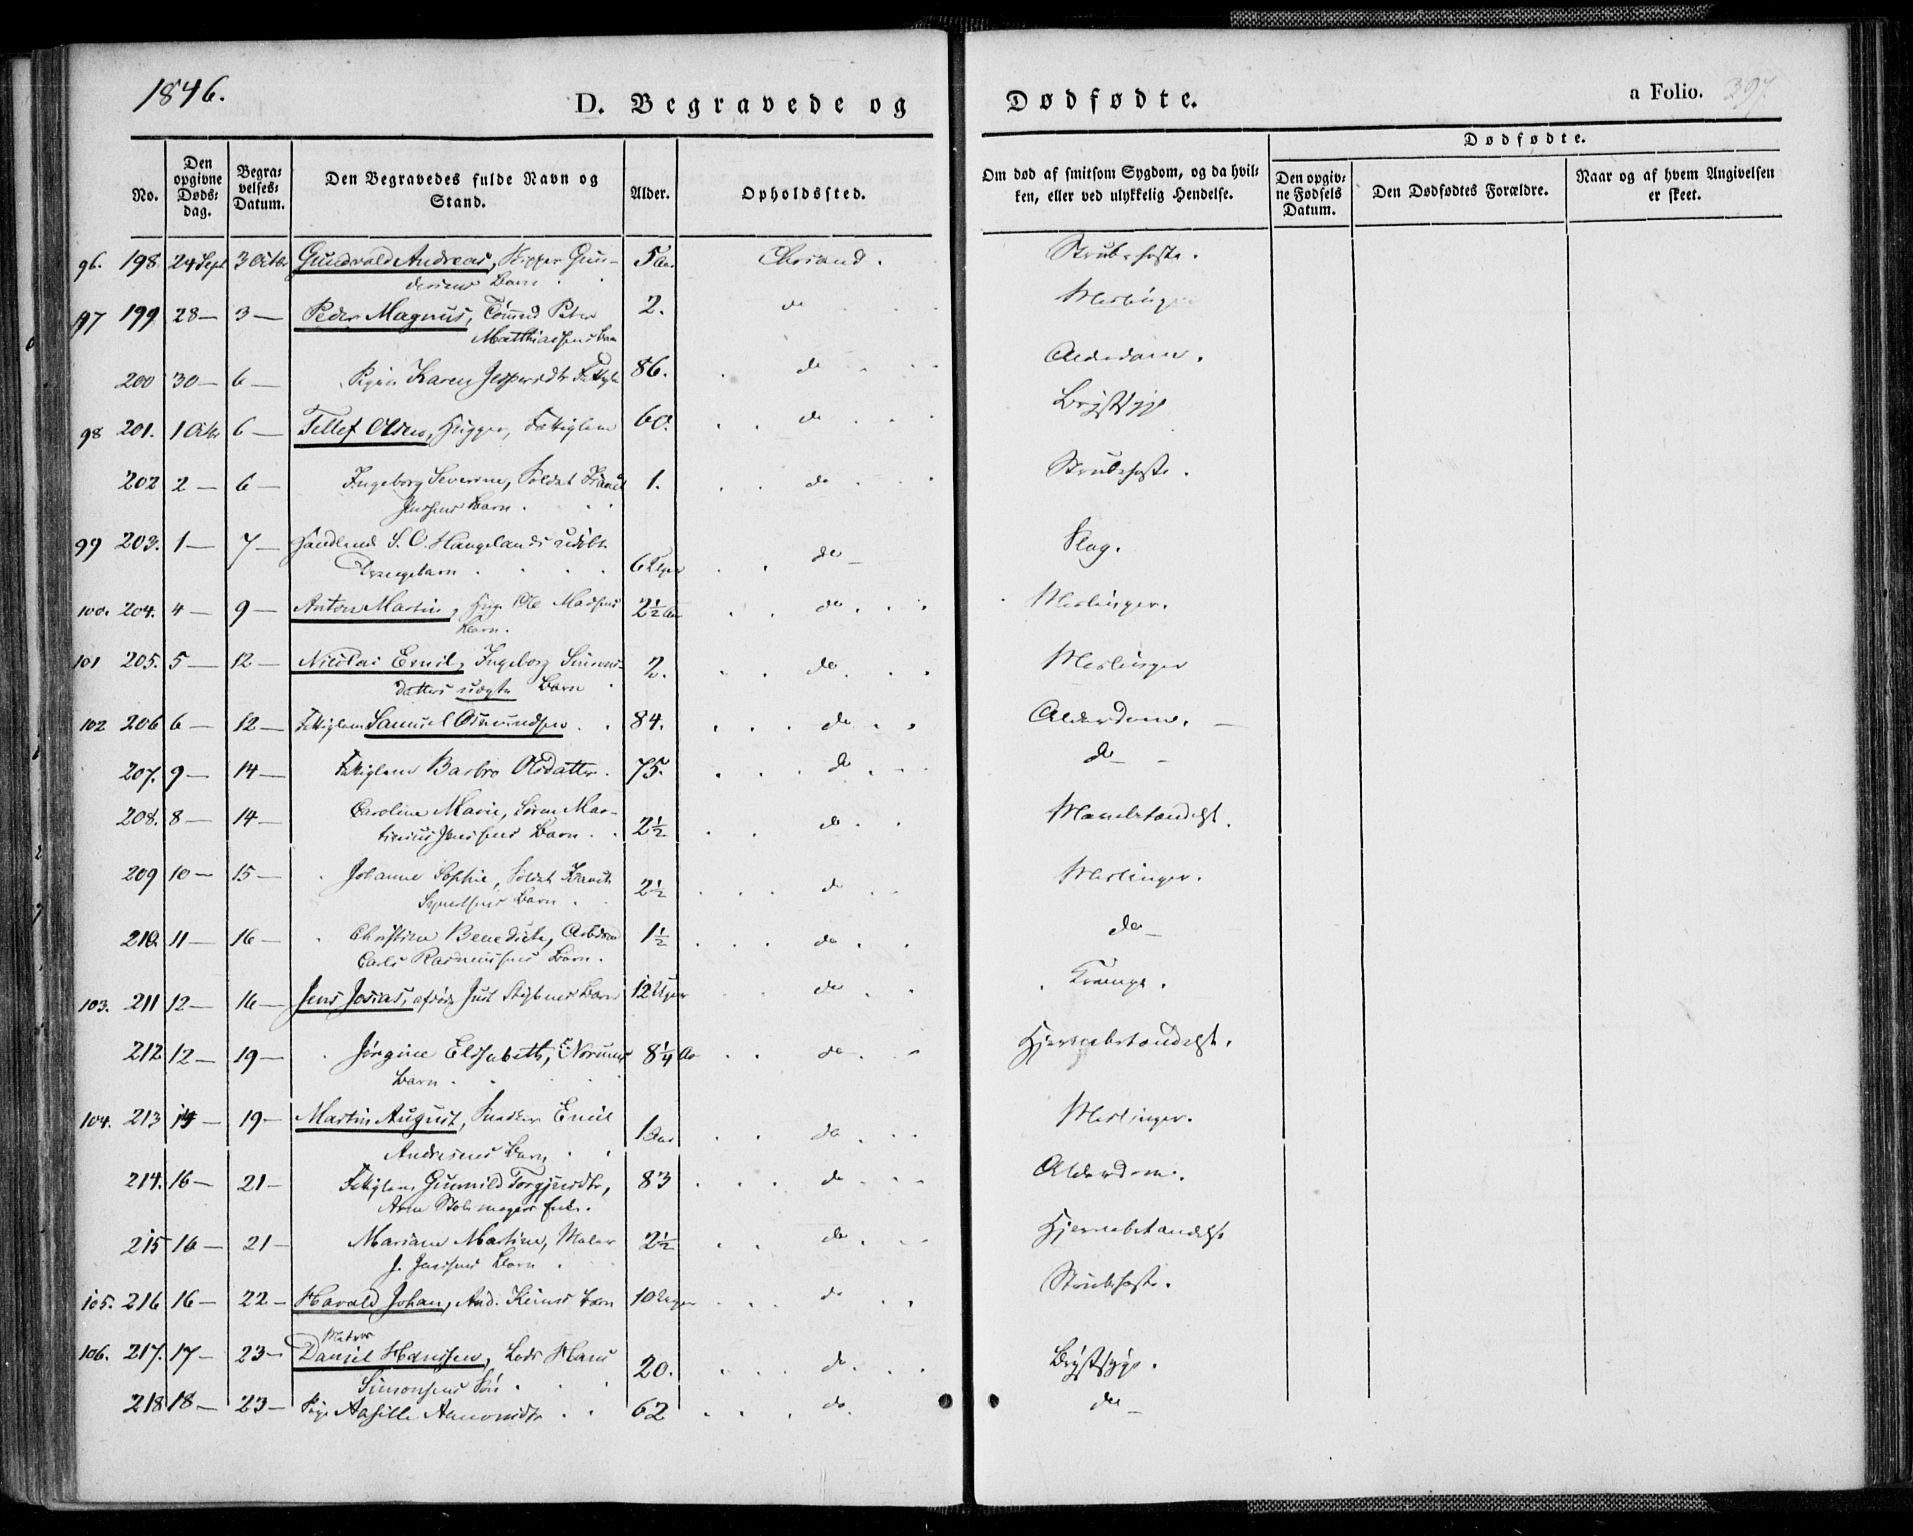 1846.
D. Begravede og
Dødfødte.
a Folio. 397
No.
Den opgivne Døds-dag.
Begra-velses-Datum.
Den Begravedes fulde Navn og Stand.
Alder.
Opholdssted.
Om død af smitsom Sygdom, og da hvil-ken, eller ved ulykkelig Hendelse.
Dødfødte.
Den opgiv-ne Fødsels Datum.
Den Dødfødtes Forældre.
Naar og af hvem Angivelsen er skeet.
96. 198. 24 Sept 3 Octbr Gundvald Andreas, Skipper Gun-
dersens Barn 5 Aar Chrsand. Strubehoste.
97 199 28 — 3 — Peder Magnus, Tømmd Peter
Matthiasens Barn 2. do Meslinger
200 30 — 6 — Pigen Karen Jespersdtr Fattiglem 86. do Alderdom.
98 201. 1 Octbr 6 — Tellef Olsen, Fattiglem 60. do Brystsyge
202 2 — 6 — Ingeborg Severine, Soldat
Jensens Barn. 1. do Strubehoste.
99 203. 1 — 7 — Handlende S. O. Haugelands udøbte
Drengebarn 6 Uger do Slag.
100. 204. 4 — 9 — Anton Martin, Ole Madsens
Barn. 2½ Aar do Meslinger.
101 205. 5 — 12 — Nicolai Emil, Ingeborg Simons-
datters uægte Barn 2. do Meslinger
102 206 6 — 12 — Fattiglem Samuel Osmundsen 84. do Alderdom. —
207. 9 — 14 — Fattiglem Barbro Olsdatter. 75. do do —
208. 8 — 14 — Caroline Marie, Søren Mar-
tinius Jensens Barn 2½ do Mavebetændelse.
209 10 — 15 — Johanne Sophie, Soldat
Barn 2½ do Meslinger.
210 11 — 16 — Christine Benedicte, Arbdsmd
Carls Rasmussens Barn. 1½ do do —
103. 211 12 — 16 — Jens Josias, afdøde Just Barn 12 Uger do Krampe.
212 12 — 19 — Jørgine Elisabeth,
Barn 8¼ Aar do Hjernebetændelse.
104. 213 14 — 19 — Martin August, Snedker Emil
Andresens Barn 1 Aar do Meslinger.
214. 16 — 21 — Fattiglem Gunnild Torgjusdtr,
Arne Stolemagers Enke. 83 do Alderdom.
215 16 — 21 — Mariane Martine, Maler
J. Jensens Barn 2½ do Hjernebetændelse
105. 216 16 — 22 — Harald Johan, And. Barn 10 Uger do Strubehoste.
106. 217. 17 — 23 — Matros
Daniel Hansen, Lods Hans
Simonsens Søn 20. do Brystsyge.
218 18 — 23 — Pige Aasille Aanonsdtr 62 do. do —